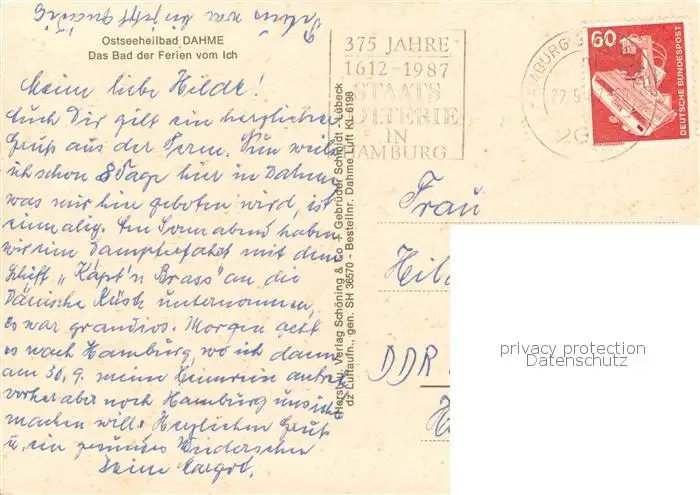 Ostseeheilbad DAHME
Das Bad der Ferien vom Ich
Meine liebe Hilde!
Auch Dir gilt ein herzlicher
Gruß aus der Ferne. Nun weile
ich schon 8 Tage hier in Dahme,
was mir hier geboten wird, ist
einmalig. Am Sonnabend haben
wir eine Dampferfahrt mit dem
Schiff „Käpt'n Brass" an die
Dänische Küste unternommen,
es war grandios. Morgen geht
es nach Hamburg, wo ich dann
am 30.9. meine Heimreise antrete
vorher aber noch Hamburg unsicher
machen will. Herzlichen Gruß
u. ein gesundes Wiedersehen
Deine Margot.
Herst. u. Verlag Schöning & Co + Gebrüder Schmidt - Lübeck
dz Luftaufn., gen. SH 36570 - Bestellnr. Dahme Luft KU 6198
375 JAHRE
1612-1987
STAATS
LOTTERIE
IN
HAMBURG
HAMBURG
60
DEUTSCHE BUNDESPOST
Frau
Hil
DDR
H
privacy protection
Datenschutz